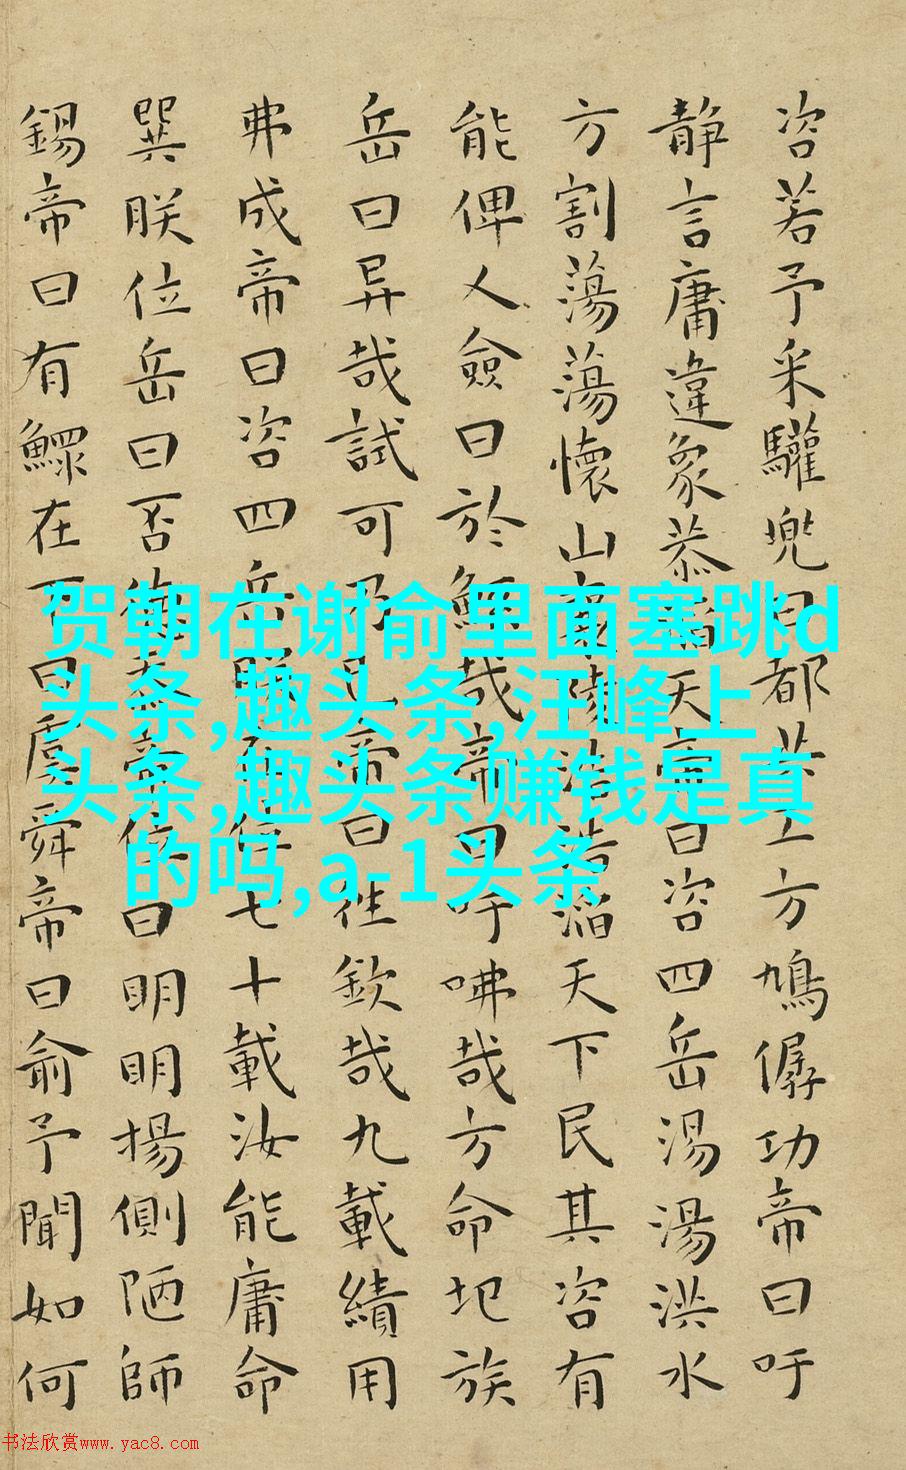 咨若予采驩兜曰都共工方鳩僝功帝曰吁
静言庸違象恭滔天帝曰咨四岳湯湯洪水
方割蕩蕩懷山襄陵浩浩滔天下民其咨有
能俾乂僉曰於鯀哉帝曰吁咈哉方命圮族
岳曰异哉試可乃已帝曰往欽哉九載績用
弗成帝曰咨四岳朕在位七十載汝能庸命
巽朕位岳曰否德忝帝位曰明明揚側陋師
錫帝曰有鰥在下曰虞舜帝曰俞予聞如何
贺朝在谢俞里面塞跳d
头条,趣头条,汪峰上
头条,趣头条赚钱是真
的吗,a-1头条
书法欣赏www.yac8.com